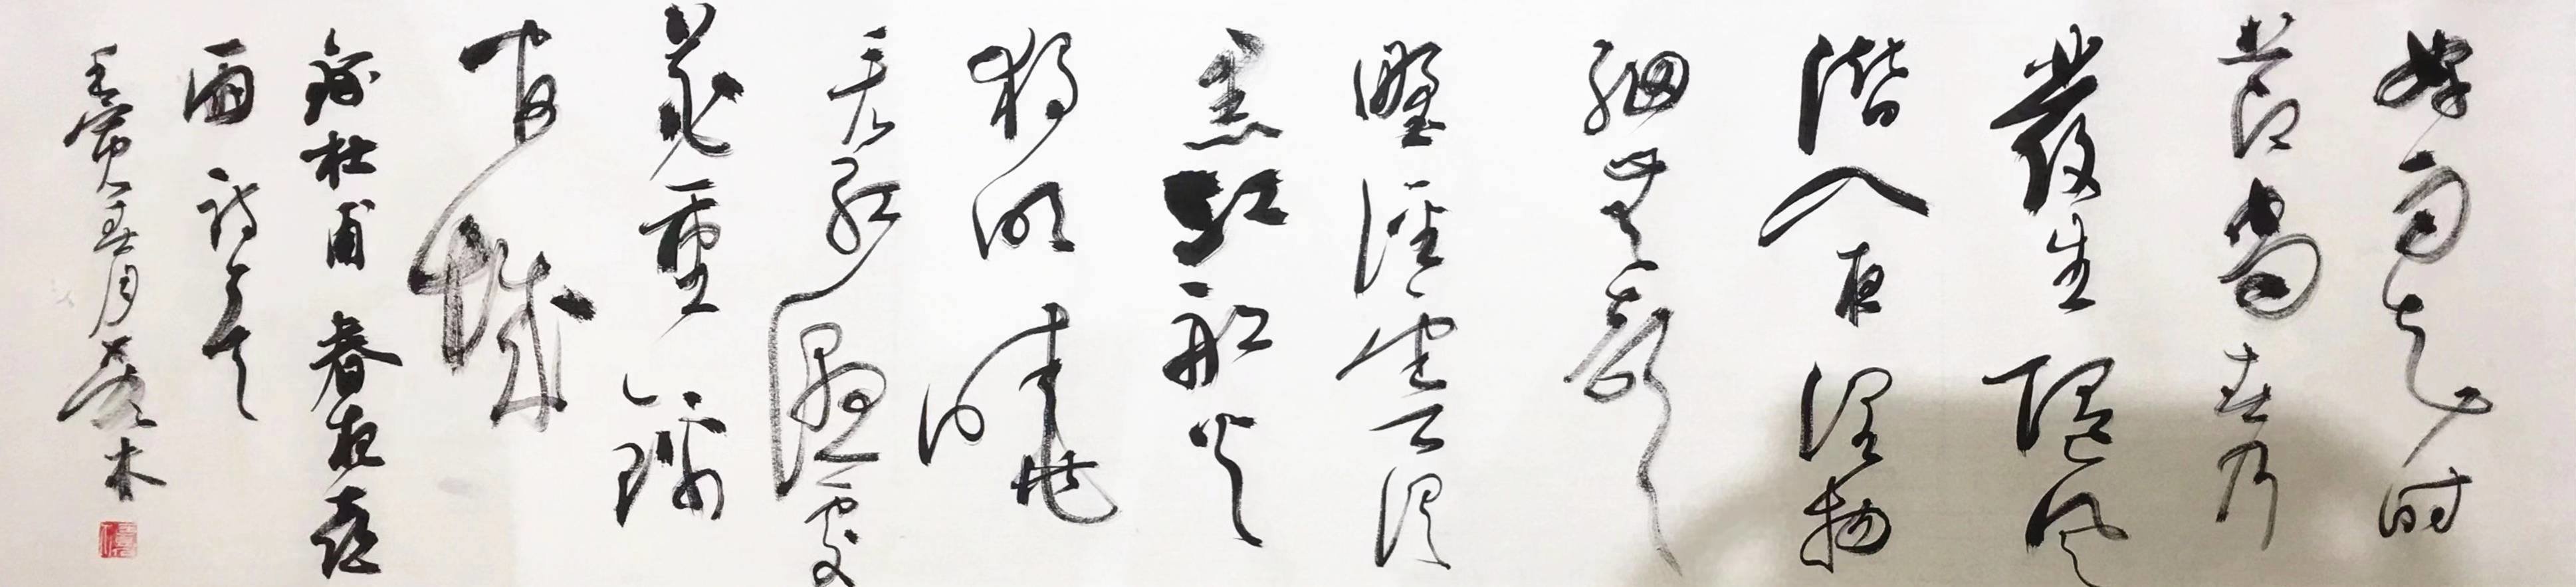 好雨知时
节当春乃
發生随风
潜入夜润物
细无声
野径云俱
黑江船火
独明晓
看红湿處
花重锦
官城
錄杜甫春夜喜
雨诗意
壬寅春月 木